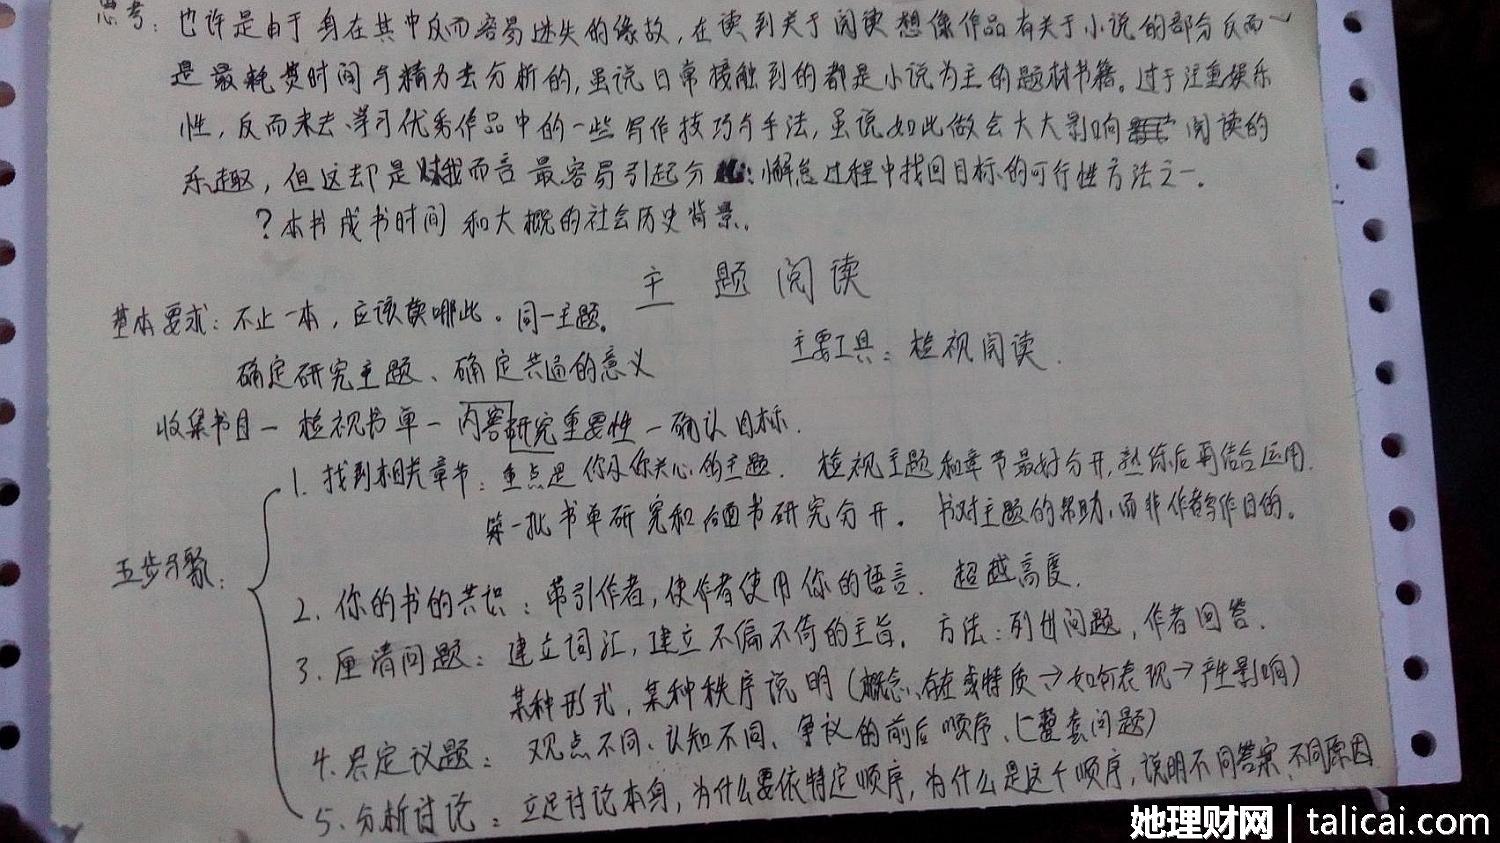 思考：也许是由于身在其中反而容易迷失的缘故，在读到关于阅读想像作品有关于小说的部分反而
是最耗费时间与精力去分析的，虽说日常接触到的都是小说为主的题材书籍。过于注重娱乐
性，反而未去学习优秀作品中的一些写作技巧与手法，虽说如此做会大大影响阅读的
乐趣，但这却是对我而言最容易引起分懈怠过程中找回目标的可行性方法之一。
？本书成书时间和大概的社会历史背景。
主题阅读
基本要求：不止一本，应该读哪些。同一主题。
主要工具：检视阅读.
确定研究主题、确定共通的意义
收集书目－检视书单－内容研究重要性－确认目标.
五步骤：
1. 找到相关章节：重点是你和你关心的主题. 检视主题和章节最好分开,熟练后再结合运用.
第一批书单研究和后面书研究分开。书对主题的帮助,而非作者写作目的。
2. 你的书的共识：带引作者,使作者使用你的语言. 超越高度.
3. 厘清问题：建立词汇,建立不偏不倚的主旨。方法：列出问题,作者回答.
某种形式,某种秩序说明(概念、存在或特质→如何表现→产生影响)
4. 界定议题：观点不同、认知不同、争议的前后顺序、(一整套问题)
5. 分析讨论：立足讨论本身,为什么要依特定顺序,为什么是这个顺序,说明不同答案,不同原因
她理财网 | talicai.com